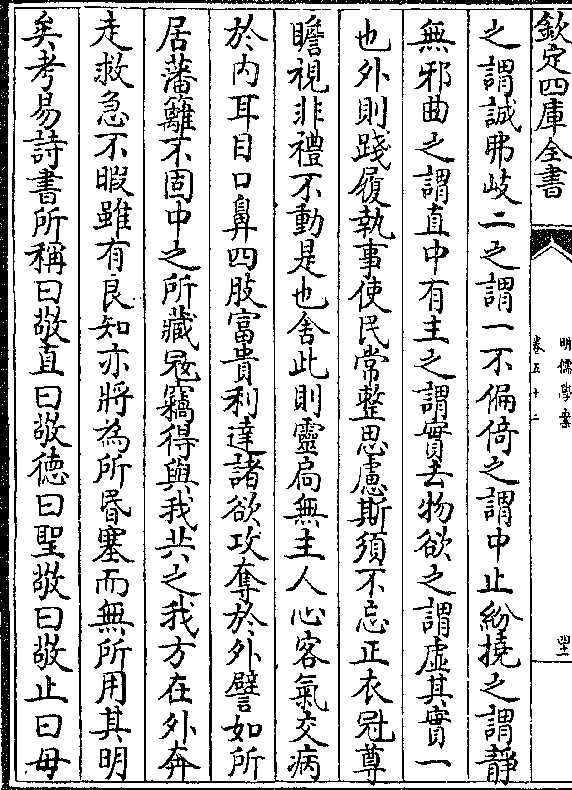 欽定四庫全書
明儒學案
卷五十二
之謂誠弗岐二之謂一不偏倚之謂中止紛撓之謂靜
無邪曲之謂直中有主之謂實去物欲之謂虛其實一
也外則踐履執事使民常整思慮斯須不忘正衣冠尊
瞻視非禮不動是也舍此則靈扃無主人心客氣交病
於内耳目口鼻四肢富貴利達諸欲攻奪於外譬如所
居藩籬不固中之所藏冦竊得與我共之我方在外奔
走救急不暇雖有良知亦將為所昬塞而無所用其明
矣考易詩書所稱曰敬直曰敬徳曰聖敬曰敬止曰毋